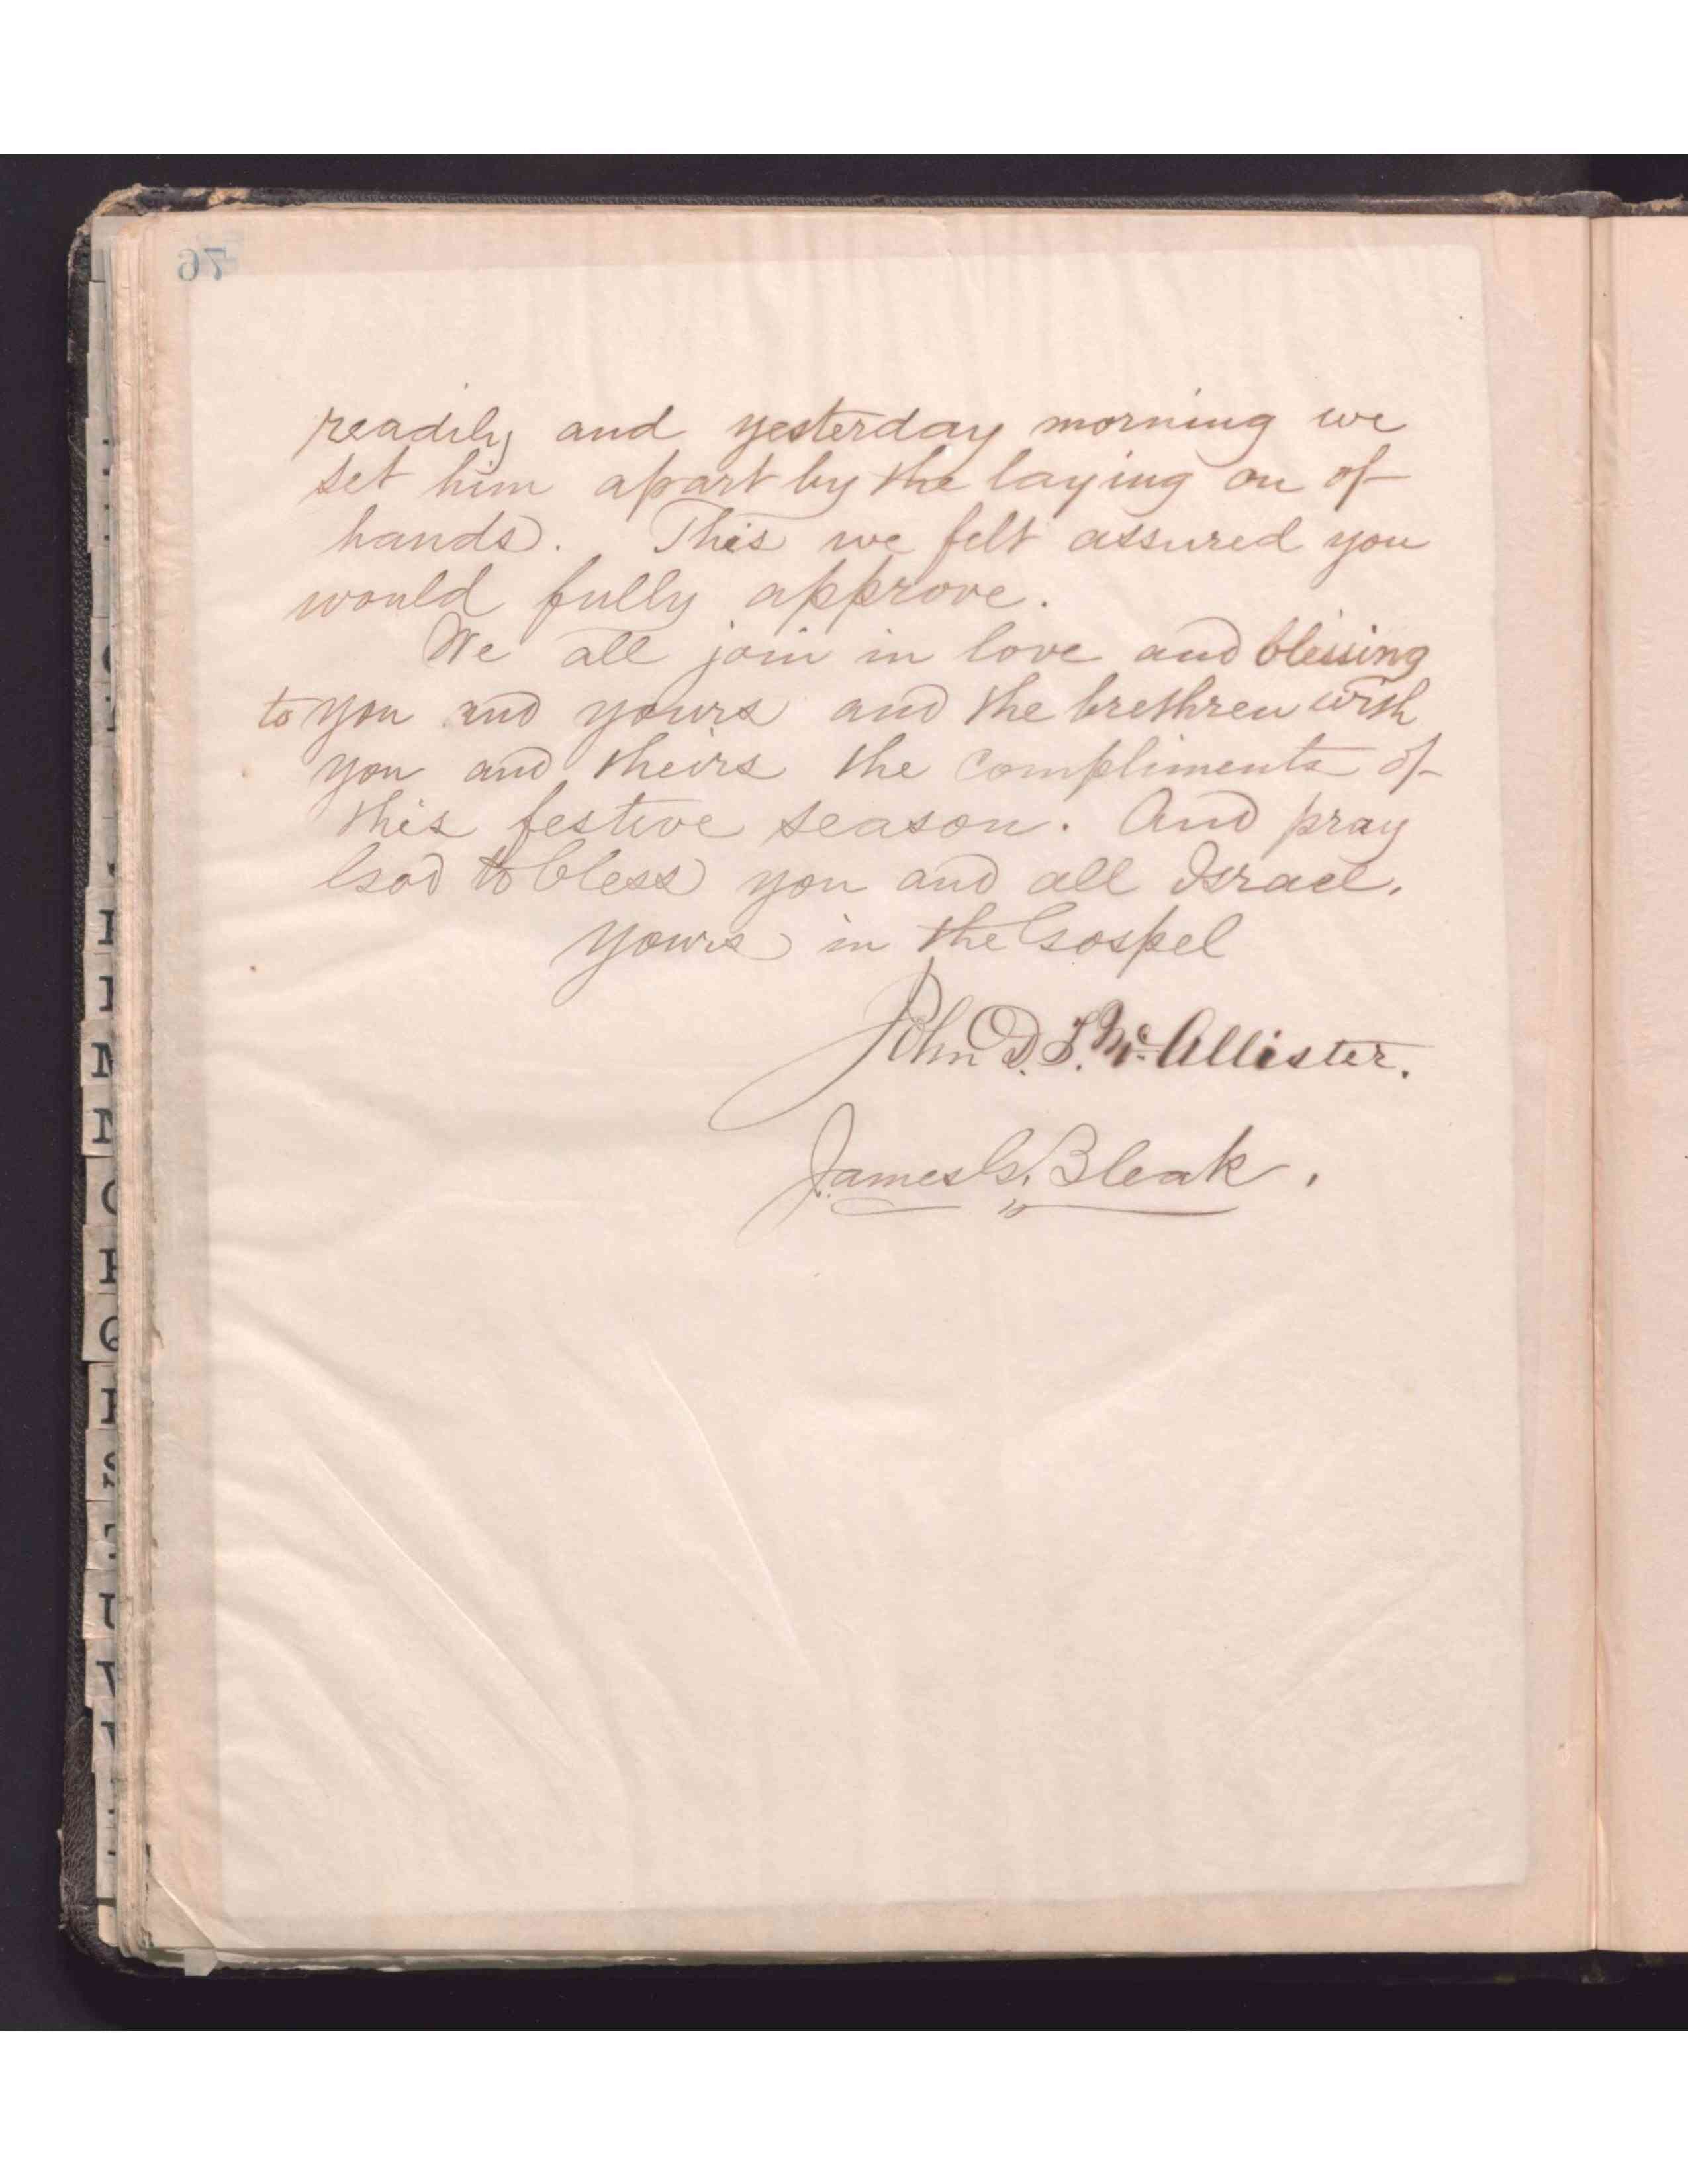 76
readily and yesterday morning we
set him apart by the laying on of
hands. This we felt assured you
would fully approve.
We all join in love and blessing
to you and yours and the brethren with
you and theirs the compliments of
this festive season. And pray
God to bless you and all Israel.
Yours in the Gospel
John D. T. McAllister.
James G. Bleak.
M
N
Q
S